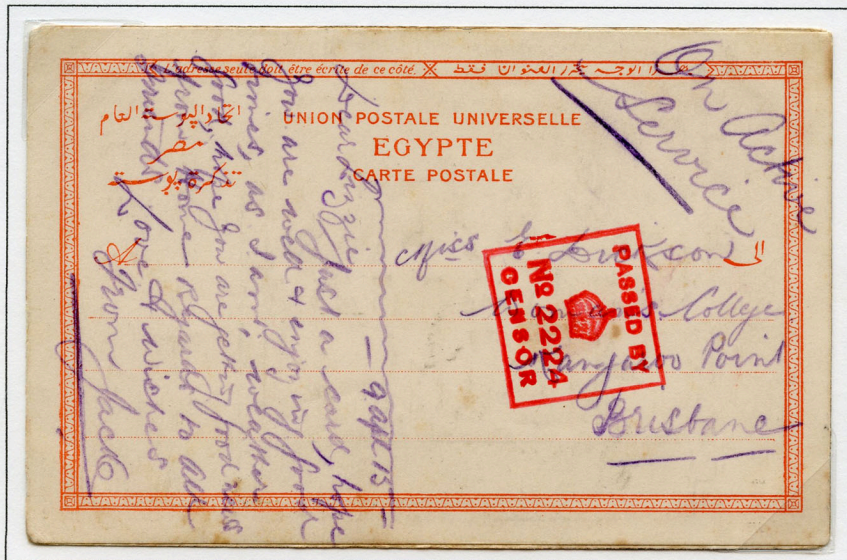 L'adresse seule doit être écrite de ce côté.
هذا الوجه يحرر العنوان فقط
اتحاد البوستة العام
مصر
تذكرة بوستة
UNION POSTALE UNIVERSELLE
EGYPTE
CARTE POSTALE
On Active
Service
Miss E
College
Point
Brisbane
الى
A
PASSED BY
No 2224
CENSOR
9 Apl 15
Dear Lizzie Just a card, hope
you are well & enjoying good
times, as I am, weather
good, hope you are getting good news
from home regards to all
friends
Love & wishes
From Jack